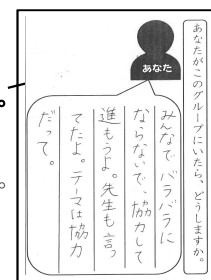 あなたがこのグループにいたら、どうしますか。
あなた
みんなでバラバラに
ならないで、協力して
進もうよ。先生も言っ
てたよ。テーマは協力
だって。